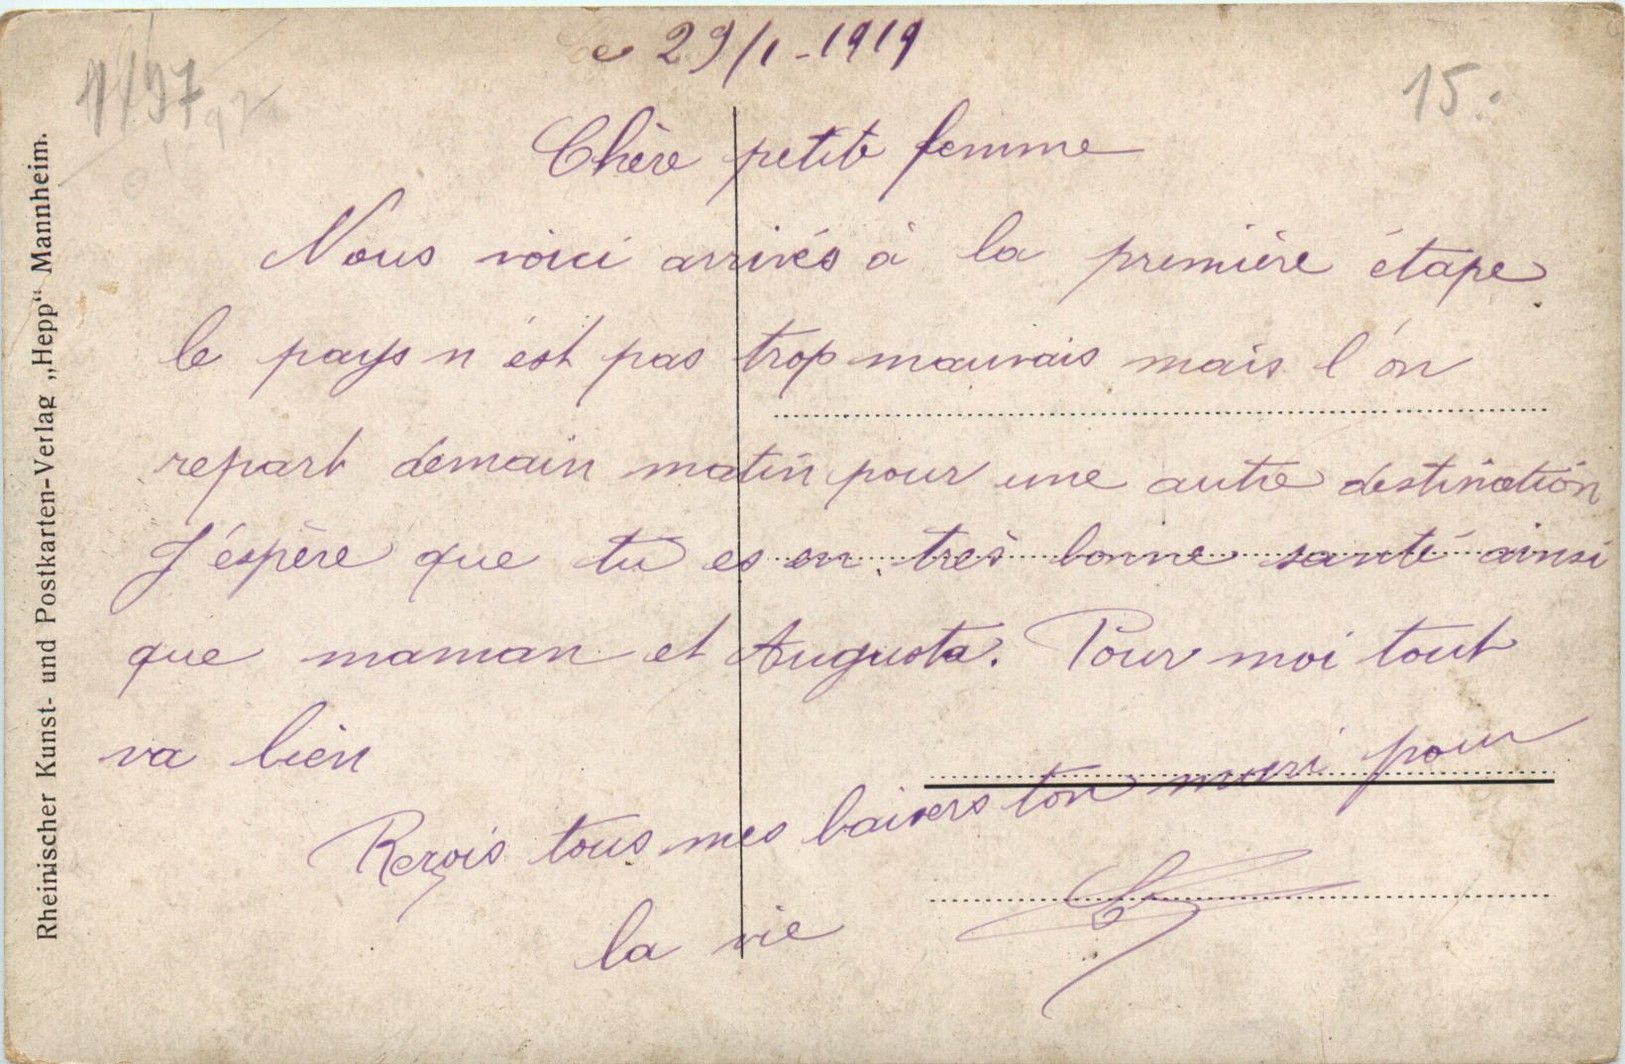 Le 29/1-1919
15.
Chère petite femme
Nous voici arrivés à la première étape
le pays n'est pas trop mauvais mais l'on
repart demain matin pour une autre destination
J'éspère que tu es en très bonne santé ainsi
que maman et Augusta. Pour moi tout
va bien
Reçois tous mes baisers ton mari pour
la vie
Rheinischer Kunst- und Postkarten-Verlag „Hepp“ Mannheim.